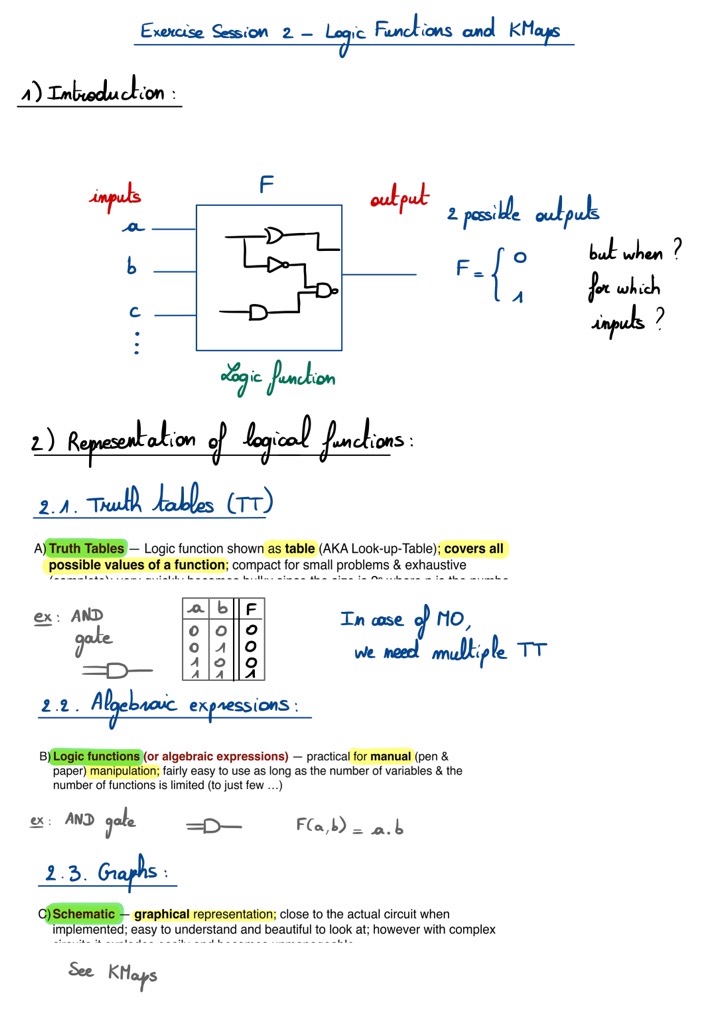 Exercise Session 2 – Logic Functions and KMaps
1) Introduction :
inputs
F
output
2 possible outputs
a
b
c
F = { 0
1
but when ?
for which
inputs ?
Logic function
2) Representation of logical functions :
2.1. Truth tables (TT)
A) Truth Tables — Logic function shown as table (AKA Look-up-Table); covers all
possible values of a function; compact for small problems & exhaustive
ex : AND
gate
a b F
0 0 0
0 1 0
1 0 0
1 1 1
In case of MO,
we need multiple TT
2.2. Algebraic expressions :
B) Logic functions (or algebraic expressions) — practical for manual (pen &
paper) manipulation; fairly easy to use as long as the number of variables & the
number of functions is limited (to just few …)
ex : AND gate
F(a,b) = a.b
2.3. Graphs :
C) Schematic — graphical representation; close to the actual circuit when
implemented; easy to understand and beautiful to look at; however with complex
See KMaps